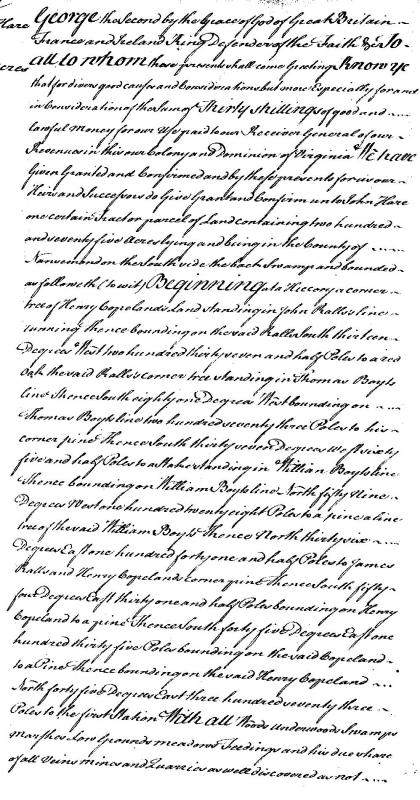 Hare
George the Second by the Grace of God of Great Britain
France and Ireland King Defender of the Faith &c To
all to whom these presents shall come Greeting Know ye
that for divers good causes and Considerations but more Especially for and
in Consideration of the Sum of Thirty shillings of good and
Lawful money for our Use paid to our Receiver General of our
Revenues in this our Colony and Dominion of Virginia We have
Given Granted and Confirmed and by these presents for us our
Heirs and Successors do Give Grant and Confirm unto John Hare
one certain Tract or parcel of Land containing two hundred
and seventy five Acres lying and being in the County of
Nansemond on the South side the back Swamp and bounded
as followeth (to wit) Beginning at a Hiccory a corner
tree of Henry Copelands Land standing in John Ralls's line
running thence bounding on the said Ralls South thirteen
Degrees West two hundred thirty seven and half Poles to a red
Oak the said Ralls's corner tree standing in Thomas Boyts
line thence South eighty one Degrees West bounding on
Thomas Boyts line two hundred seventy three Poles to his
corner pine Thence South thirty seven Degrees West sixty
five and half Poles to a Stake standing in William Boyts line
Thence bounding on William Boyts line North fifty Nine
Degrees West one hundred twenty eight Poles to a pine a line
tree of the said William Boyts Thence North thirty six
Degrees East one hundred forty one and half Poles to James
Ralls and Henry Copelands corner pine Thence South fifty
four Degrees East thirty one and half Poles bounding on Henry
Copeland to a pine Thence South forty five Degrees East one
hundred thirty five Poles bounding on the said Copeland
to a Pine Thence bounding on the said Henry Copeland
North forty five Degrees East three hundred seventy three
Poles to the first Station With all Woods Underwoods Swamps
marshes Low Grounds meadows Feedings and his due share
of all Veins mines and Quarries as well discovered as not